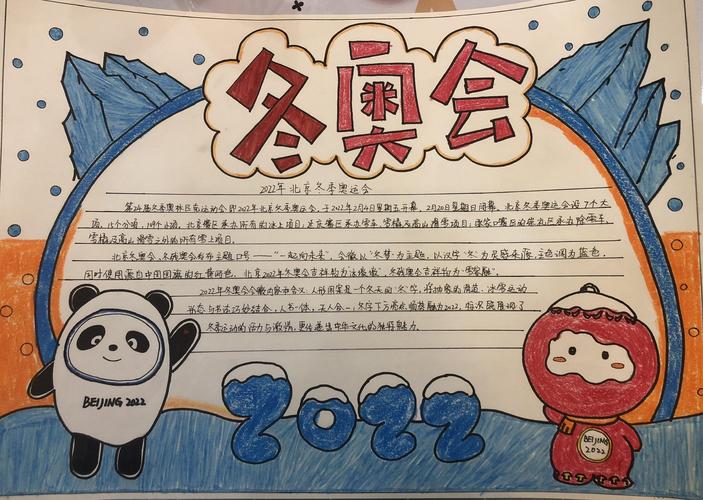 冬奥会
2022年北京冬季奥运会
第24届冬季奥林匹克运动会即2022年北京冬季奥运会,于2022年2月4日星期五开幕,2月20日星期日闭幕。北京冬季奥运会设7个大
项,15个分项,109个小项。北京赛区承办所有的冰上项目,延庆赛区承办雪车、雪橇及高山滑雪项目;张家口赛区的崇礼区承办除雪车、
雪橇及高山滑雪之外的所有雪上项目。
北京冬奥会、冬残奥会发布主题口号——“一起向未来”,会徽以“冬梦”为主题,以汉字“冬”为灵感来源,主色调为蓝色,
同时使用源自中国国旗的红黄两色。北京2022年冬奥会吉祥物为“冰墩墩”,冬残奥会吉祥物为“雪容融”。
2022年冬奥会会徽内容和含义:人形图案是一个冬天的“冬”字,将抽象的滑道、冰雪运动
形态与书法巧妙结合,人书一体,天人合一,冬字下方
为2022,
冬季运动的活力与激情,更传递出中华文化的独特魅力。
BEIJING 2022
2022
BEIJING
2022